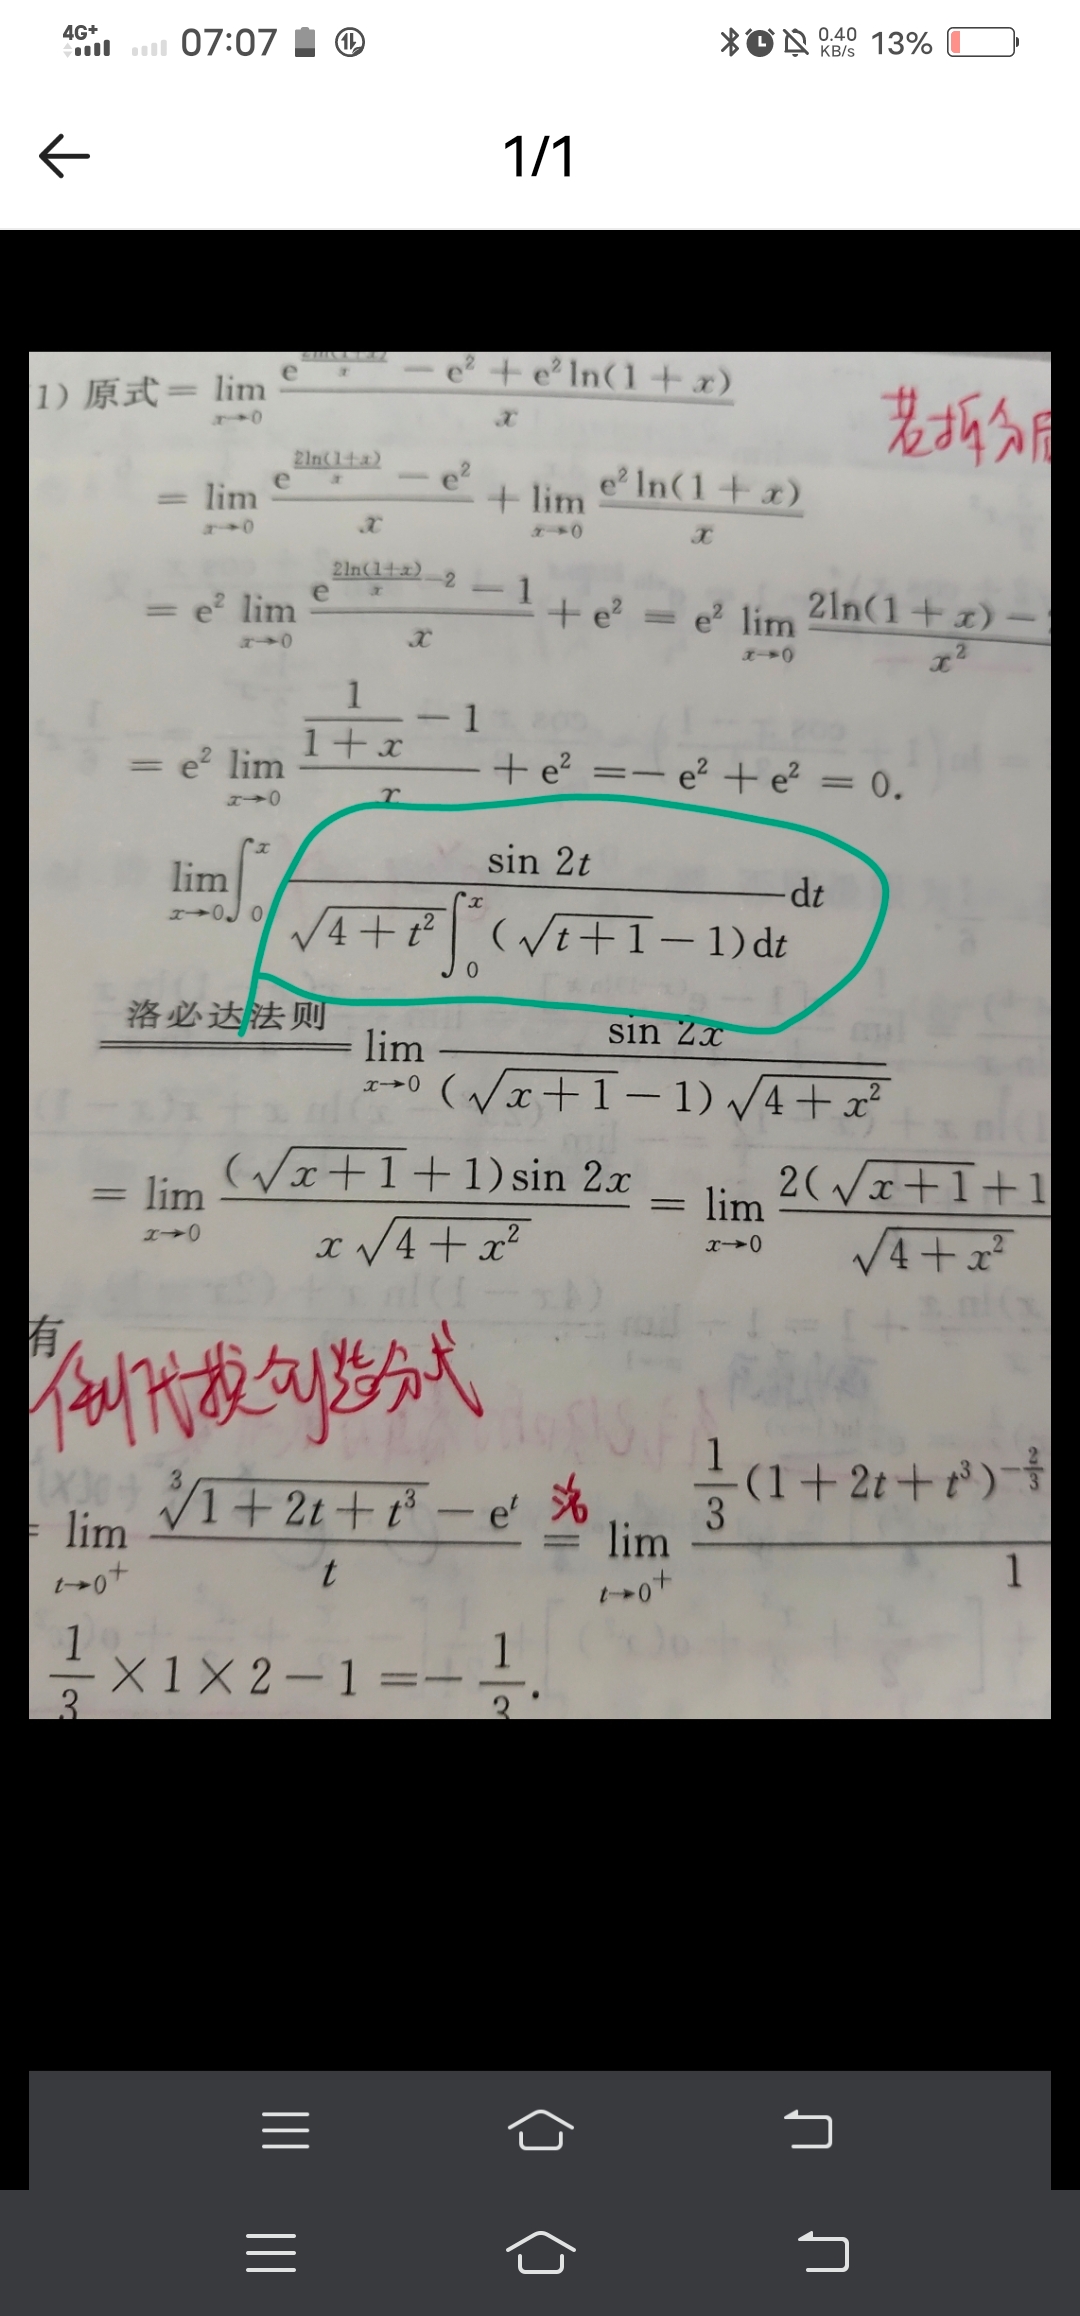 4G+ 07:07 0.40 KB/s 13%
1/1
1) 原式 = lim x→0 (e^(2ln(1+x)/x) − e² + e² ln(1 + x))/x
若拆分后
= lim x→0 (e^(2ln(1+x)/x) − e²)/x + lim x→0 (e² ln(1 + x))/x
= e² lim x→0 (e^(2ln(1+x)/x −2) − 1)/x + e² = e² lim x→0 (2ln(1 + x) −)/x²
= e² lim x→0 (1/(1 + x) − 1)/x + e² = − e² + e² = 0.
lim x→0 ∫₀ˣ sin 2t/(√(4 + t²) ∫₀ˣ (√(t + 1) − 1)dt) dt
洛必达法则 lim x→0 sin 2x/((√(x + 1) − 1) √(4 + x²))
= lim x→0 ((√(x + 1) + 1) sin 2x)/(x √(4 + x²)) = lim x→0 2(√(x + 1) + 1/√(4 + x²)
有
倒代换创造分式
= lim t→0⁺ (∛(1 + 2t + t³) − eᵗ)/t 洛= lim t→0⁺ (1/3 (1 + 2t + t³)^(−2/3))/1
1/3 × 1 × 2 − 1 = − 1/3.